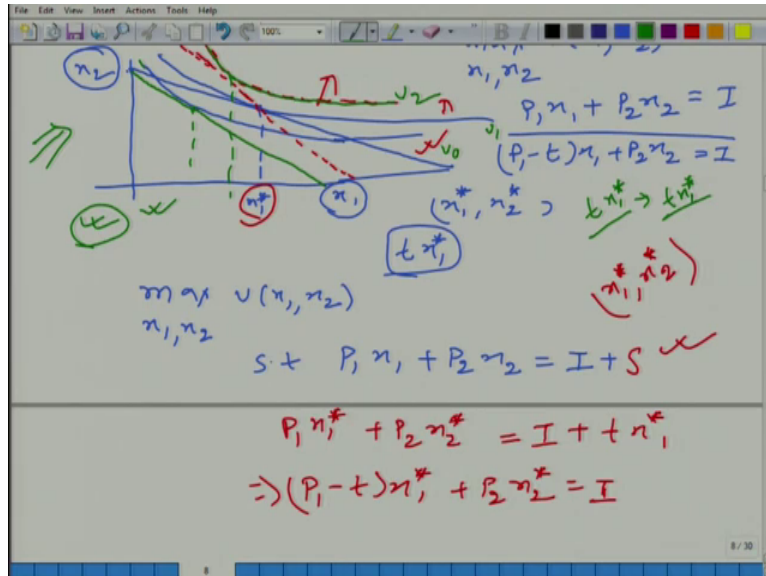 File Edit View Insert Actions Tools Help
100%
B I
x₂
x₁, x₂
P₁x₁ + P₂x₂ = I
(P₁-t)x₁ + P₂x₂ = I
U₂
U₁
U₀
x₁*
x₁
(x₁*, x₂*)
tx₁* → tx₁*
tx₁*
(x₁*, x₂*)
max U(x₁, x₂)
x₁, x₂
s.t P₁x₁ + P₂x₂ = I + S
P₁x₁* + P₂x₂* = I + tx₁*
⇒ (P₁-t)x₁* + P₂x₂* = I
8/30
8